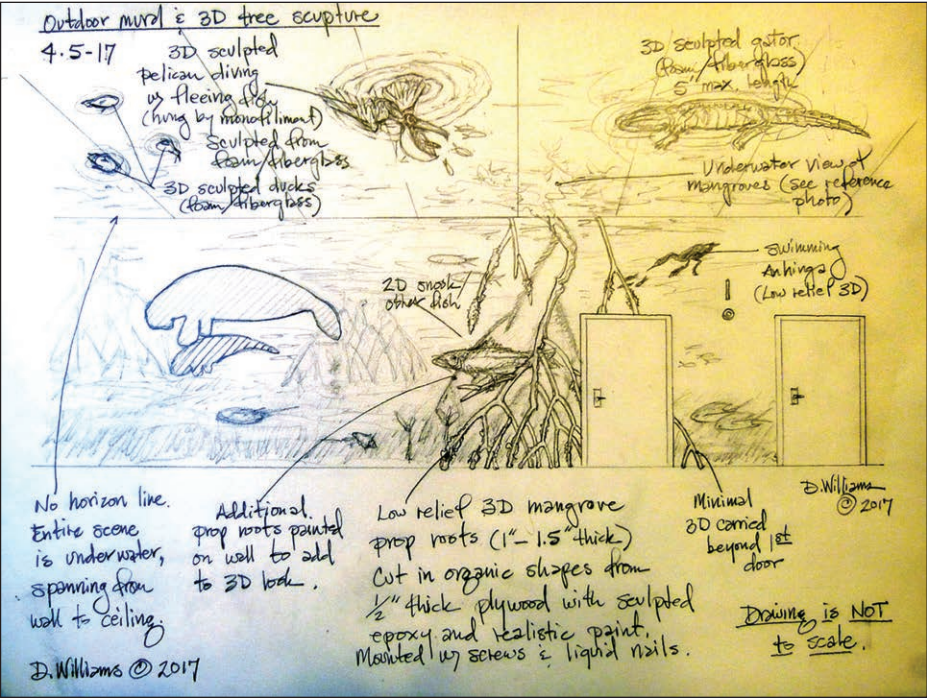 Outdoor mural & 3D tree scupture
4.5-17
3D sculpted
pelican diving
w/ fleeing fish
(hung by monofiliment)
Sculpted from
foam/fiberglass
3D sculpted ducks
(foam/fiberglass)
3D sculpted gator
(foam/fiberglass)
5" max. length
Underwater view of
mangroves (see reference
photo)
2D snook/
other fish
Swimming
Anhinga
(Low relief 3D)
No horizon line.
Entire scene
is underwater,
spanning from
wall to ceiling.
D. Williams © 2017
Additional
prop roots painted
on wall to add
to 3D look.
Low relief 3D mangrove
prop roots (1"–1.5" thick)
Cut in organic shapes from
1/2" thick plywood with sculpted
epoxy and realistic paint.
Mounted w/ screws & liquid nails.
Minimal
3D carried
beyond 1st
door
D. Williams
© 2017
Drawing is NOT
to scale.